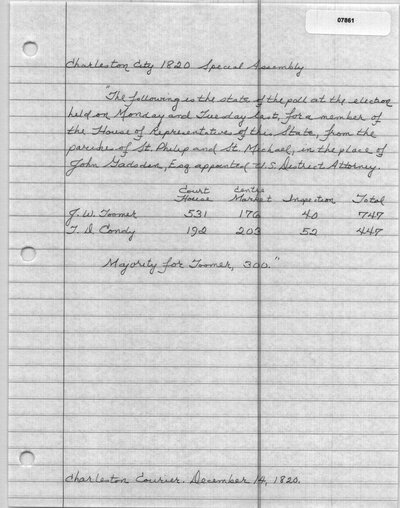 07861
Charleston City 1820 Special Assembly
"The following is the state of the poll at the election
held on Monday and Tuesday last, for a member of
the House of Representatives of this State, from the
parishes of St. Philip and St. Michael, in the place of
John Gadsden, Esq appointed U.S. District Attorney.
Court Centre
House Market Inspection Total
J. W. Toomer 531 176 40 747
T. D Condy 192 203 52 447
Majority for Toomer, 300."
Charleston Courier. December 14, 1820.